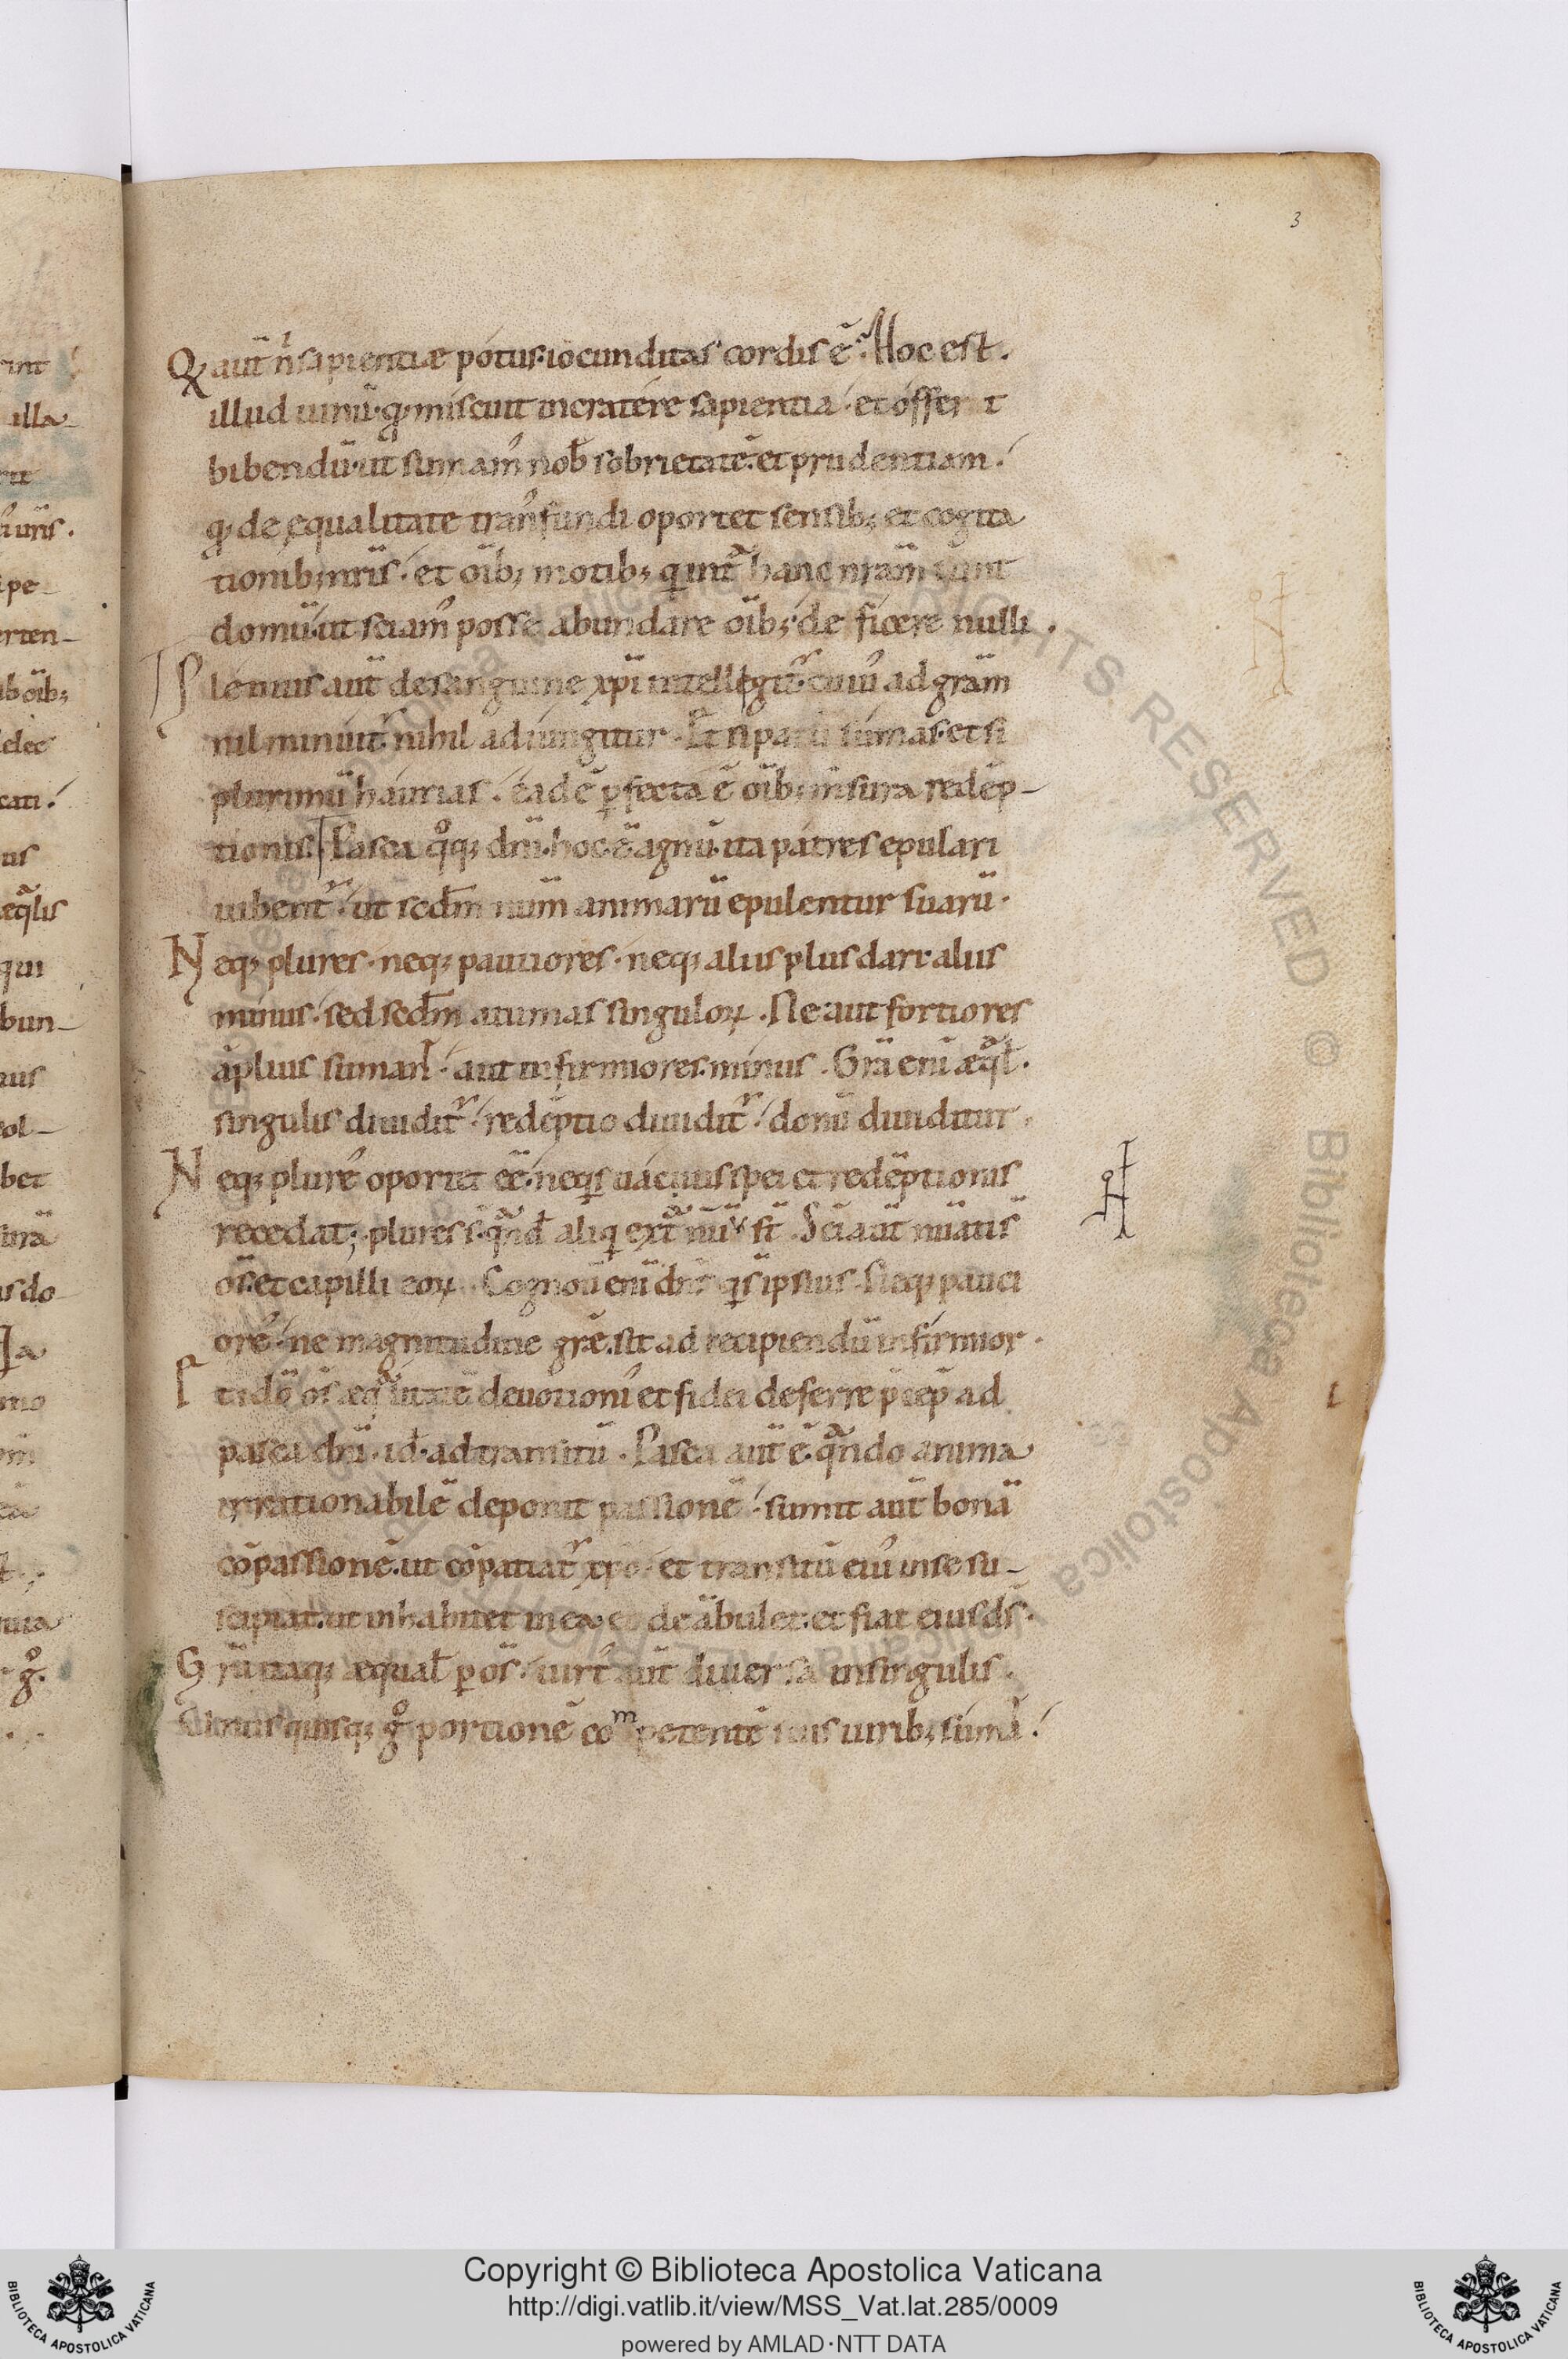 3
Qͅ aut̄ ń sapientiæ potus· iocunditas cordis ē· Hoc est.
illud uinū· qͅ miscuit incratére sapientia· et offert
bibendū· ut sumam᾽ nob̄ sobrietatē· et prudentiam·
qͅ de equalitate tran᾽fundi oportet sensib; et cogita
tionib; nr̄is· et oīb; motib; q int̄ hanc nr̄am sunt
domū· ut sciam᾽ posse abundare oīb; de ficere nulli.
Plenius aut̄ de sanguine xp̄i intellegit᾽· cuiu᾽ ad grām
nil minuit᾽· nihil adiungitur· Et si parū súmas· et si
plurimū haurias· eadē ꝑfecta ē oīb; m̄sura redēp-
tionis· Pasca qͦq; dn̄i· hoc ē agnū· ita patres epulari
iubent᾽· ut secd̄m num̄ animarū epulentur suarū·
Neq; plures· neq; pauciores· neq; alius plus dari· alius
minus· sed secd̄m animas singuloꝝ· Ne aut fortiores
āplius suman̄t· aut infirmiores minus· Grā enī æqᵃl̄·
singulis diuidit᾽· redēptio diuidit᾽· donū diuiditur·
Neq; plure᾽ oportet eē· neqs uácuus spei et redēptionis
recedat; plures s̄· qᵃnd̄ aliq extᵃ num̄ s̄t· Sc̄i aut̄ nūati s̄
om̄s· et capilli eoꝝ· Cognou̅ enī dn̄s qs̄ ipsius· Neq; pauci
ore᾽· ne magnitudine grǣ· sit ad recipiendū infirmior·
Itidē oīs æqᵃlitatē deuotioni᾽ et fidei deferre p̄cep̄ ad
pasca dn̄i· id̄· ad transitū· Pasca aut̄ ē· qᵃndo anima
irrationabilē deponit passionē· sumit aut̄ bonā
cōpassionē· ut cōpatiat᾽ xp̄o· et transitū eiu᾽ in se su-
scipiat· ut inhabitet in ea et deābulet· et fiat eius d̄s·
Grā itaq; æqual̄ ꝑ om̄s· uirt᾽ aut̄ diuersa in singulis.
Unusquisq; gͦ portionē competentē suis uirib; sumat·
Copyright © Biblioteca Apostolica Vaticana
http://digi.vatlib.it/view/MSS_Vat.lat.285/0009
powered by AMLAD·NTT DATA